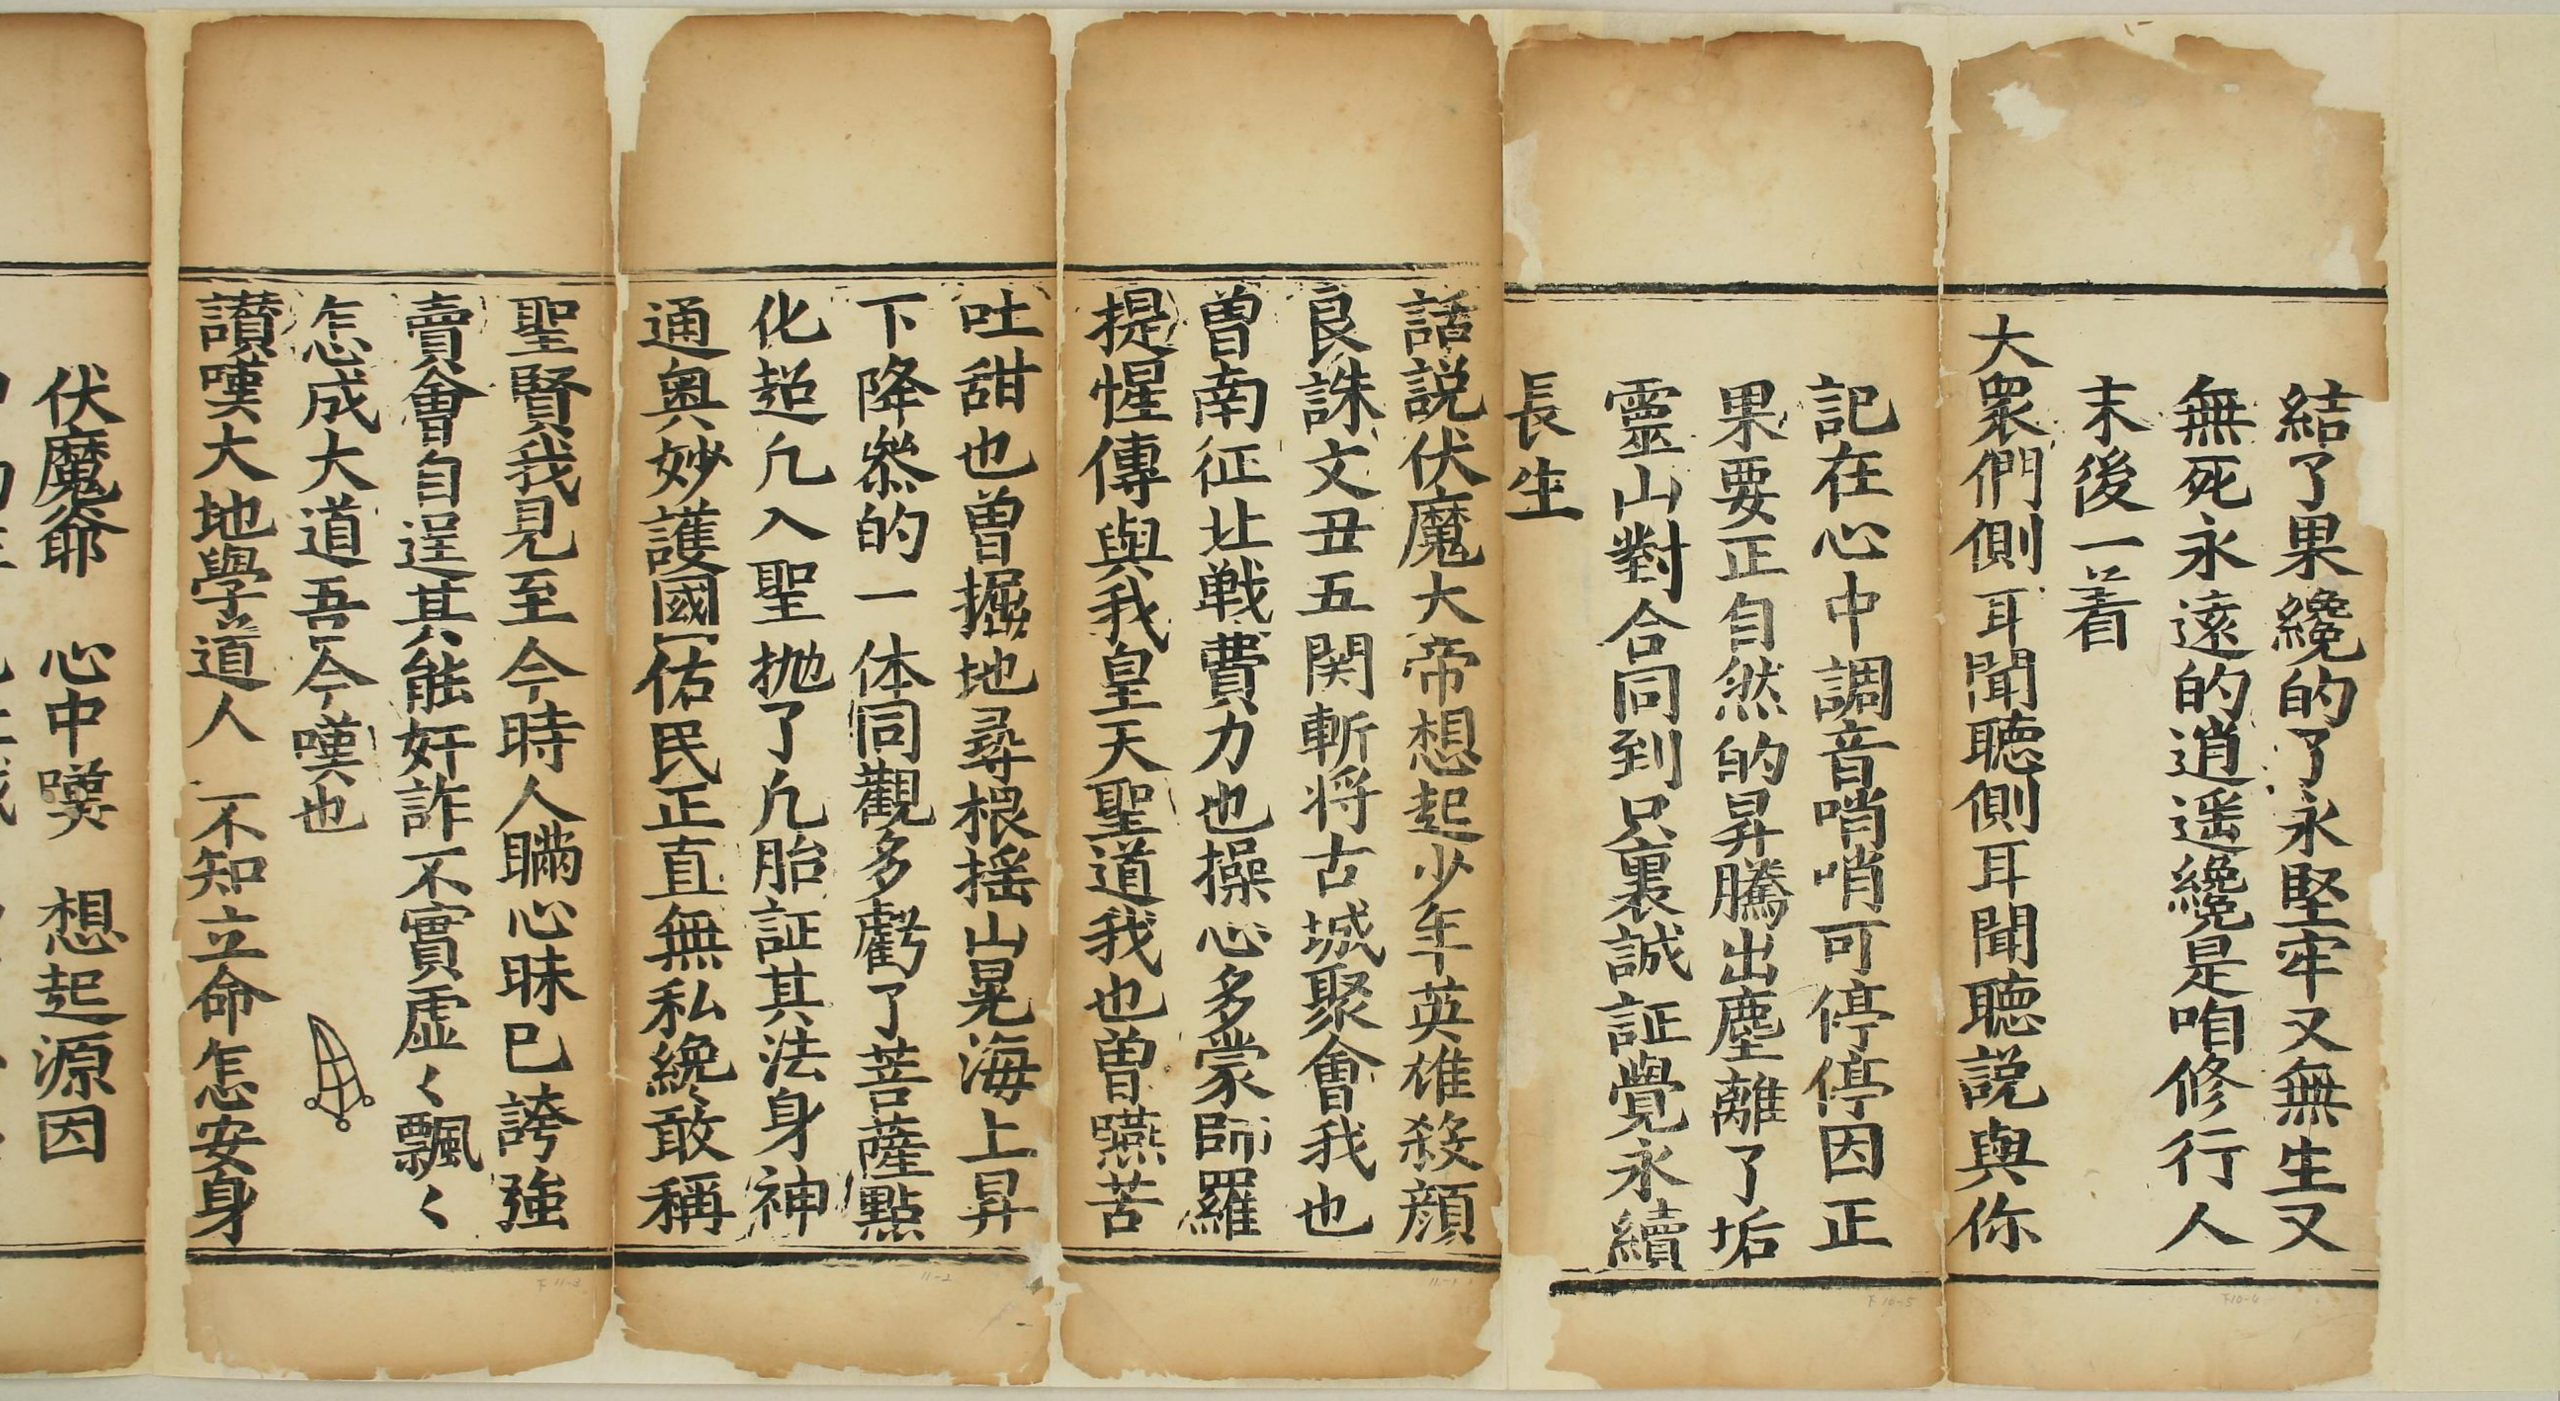 結了果纔的了永堅牢又無生又
無死永遠的逍遥纔是咱修行人
末後一着
大衆們側耳聞聽側耳聞聽説與你
記在心中調音哨哨可停停因正
果要正自然的昇騰出塵離了垢
靈山對合同到只裏誠証覺永續
長生
話説伏魔大帝想起少年英雄殺顔
良誅文丑五関斬将古城聚會我也
曽南征北戰費力也操心多蒙師羅
提惺傳與我皇天聖道我也曽嚥苦
吐甜也曽掘地尋根揺山晃海上昇
下降叅的一体同觀多虧了菩薩點
化超凢入聖抛了凢胎証其法身神
通奥妙護國佑民正直無私纔敢稱
聖賢我見至今時人瞞心昧已誇強
賣會自逞其能奸詐不實虚〻飄〻
怎成大道吾今嘆也
讃嘆大地學道人 不知立命怎安身
伏魔爺 心中嘆 想起源因